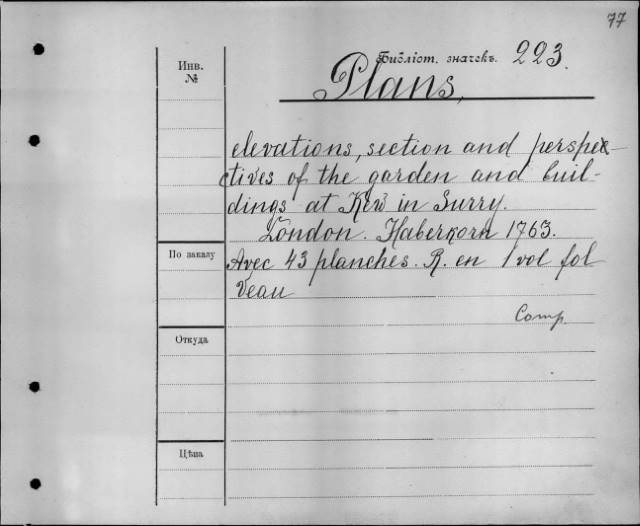 77
Библіот. значекъ. 223.
Инв.
№
Plans,
elevations, section and perspec-
ctives of the garden and buil-
dings at Kew in Surry.
London. Haberkorn 1763.
По заказу
Avec 43 planches. R. en 1 vol fol
Veau
Comp.
Откуда
Цѣна